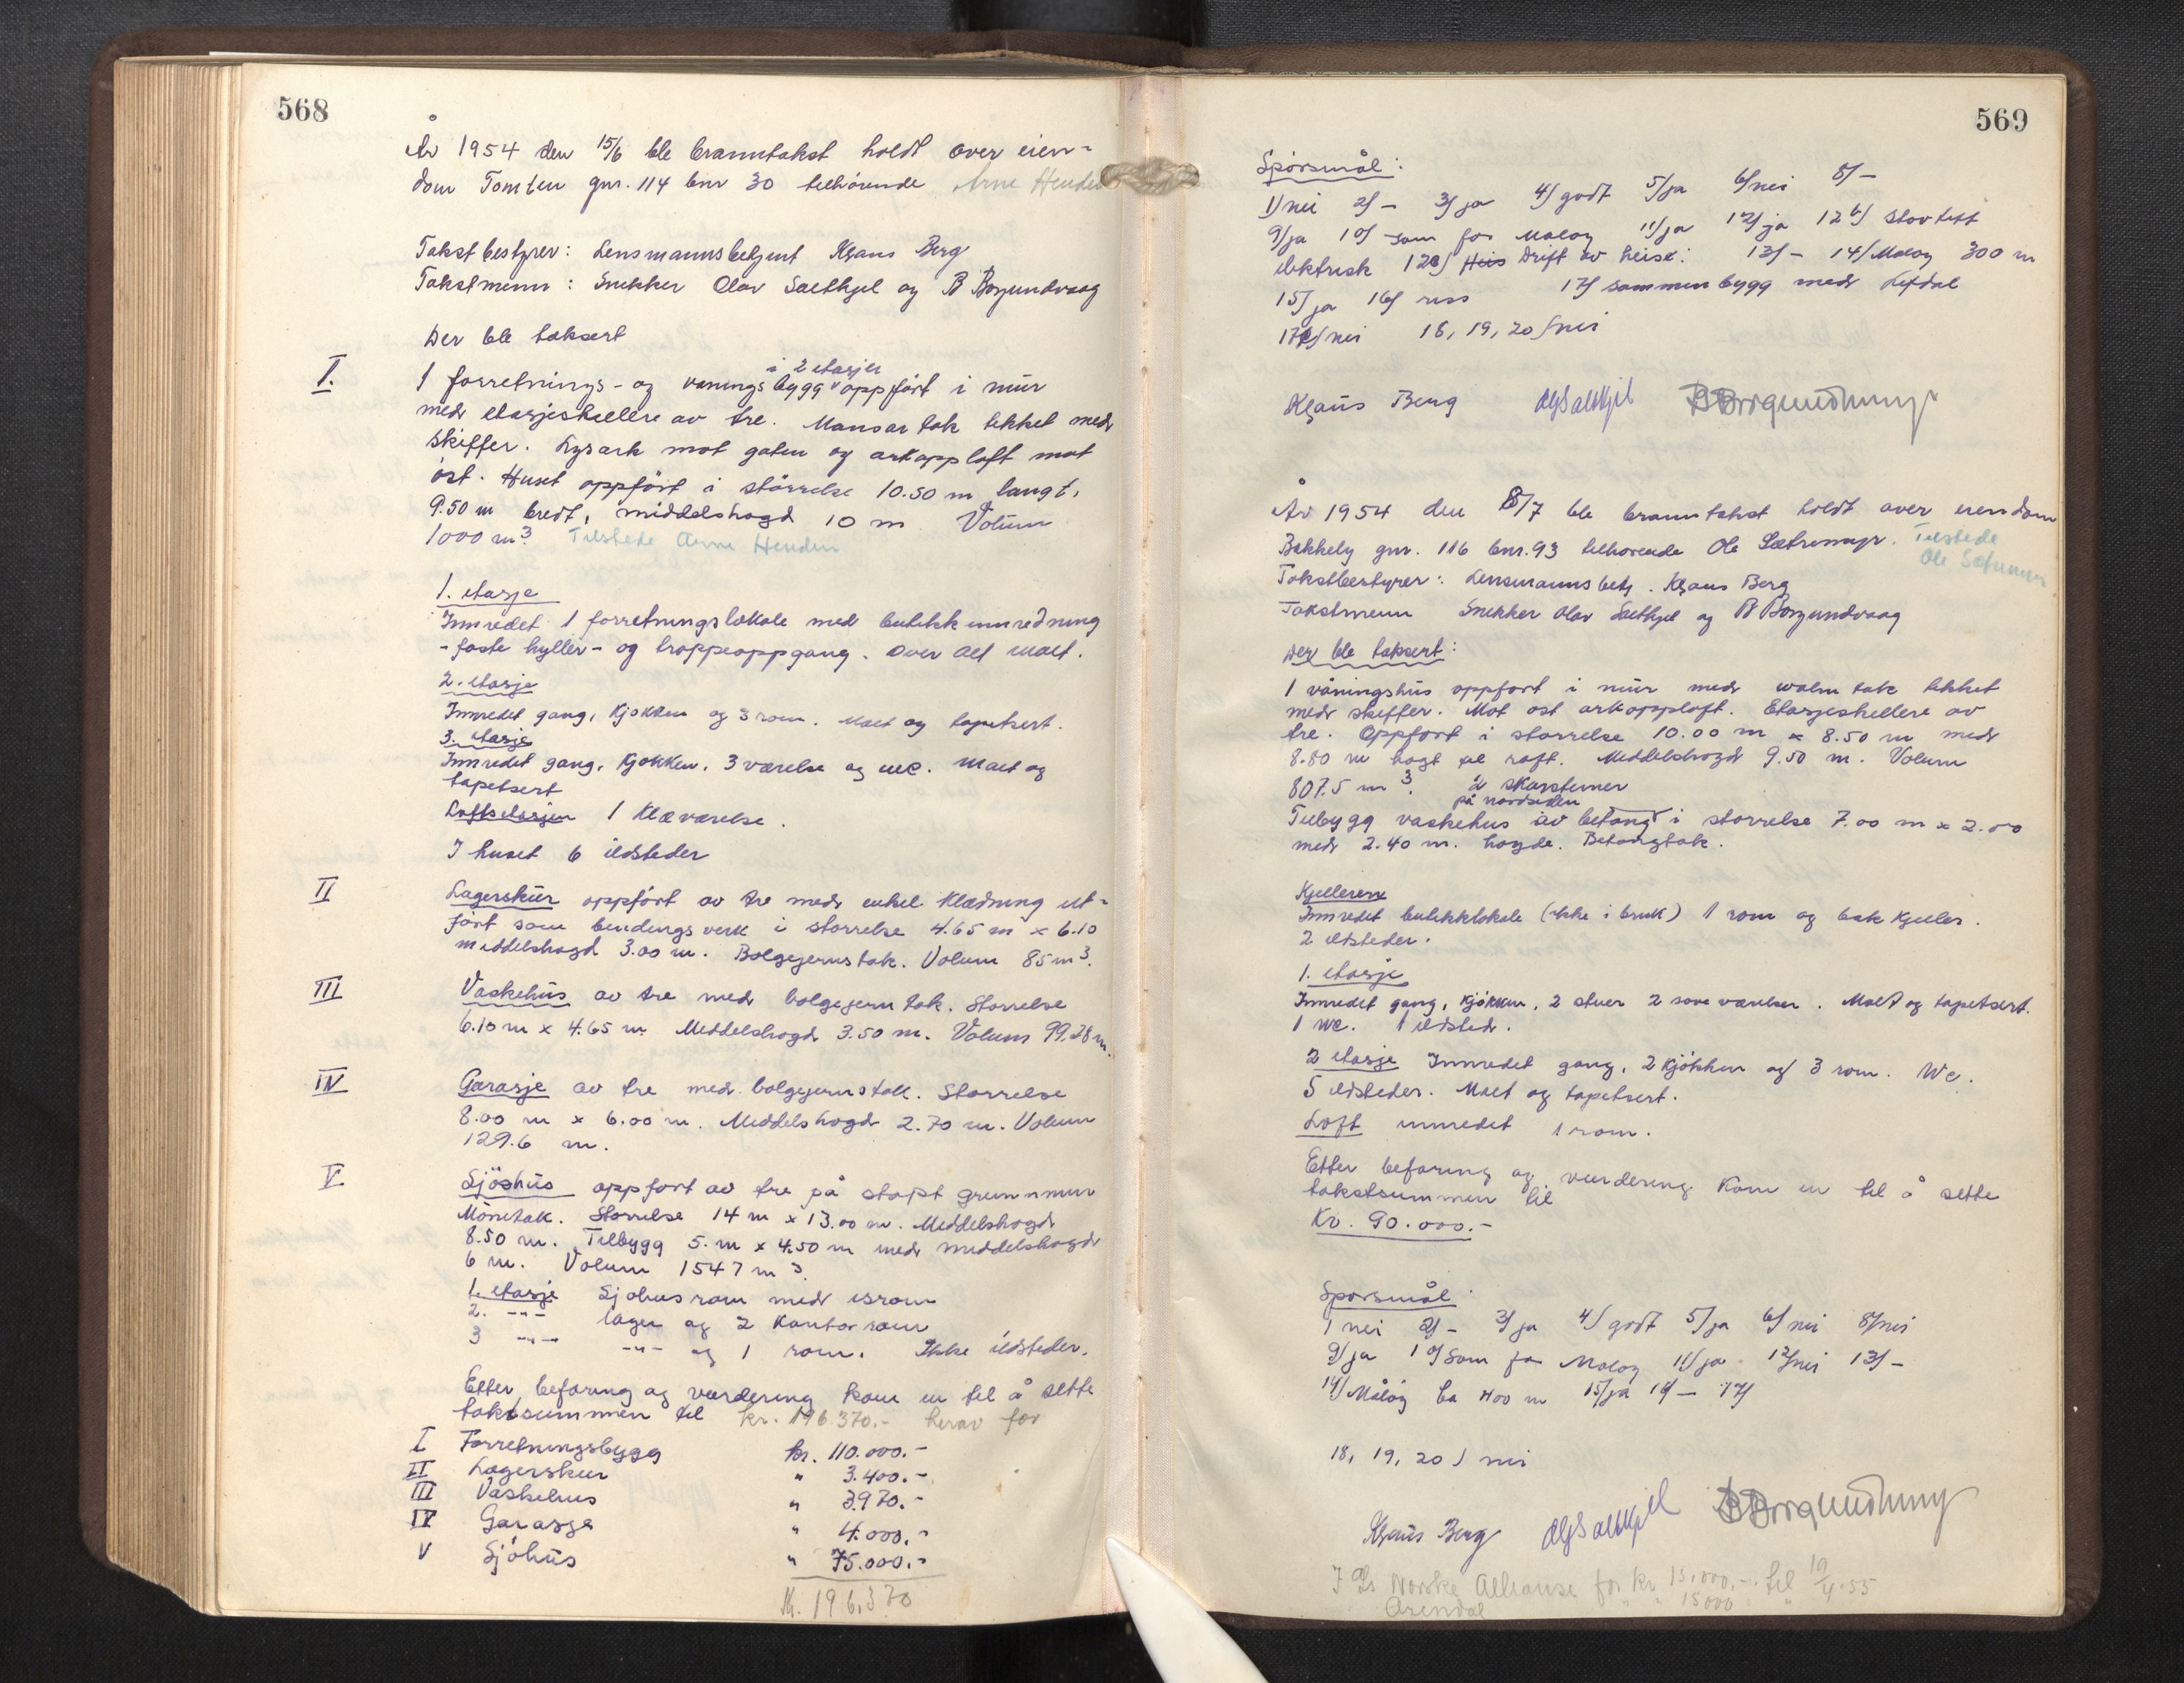 568
År 1954 den 15/6 ble branntakst holdt over eien-
dom Tomten gnr. 114 bnr 30 tilhörende Arne Henden
Takstbestyrer: Lensmannsbetjent Klaus Berg
Takstmenn: Snekker Olav Saethjel og B Borgundvaag
Der ble taksert
I. 1 forretnings- og vaningsbygg i 2 etasjer oppfört i mur
med etasjeskillere av tre. Mansartak tekket med
skiffer. Lysark mot gaten og arkopploft mot
öst. Huset oppfört i störrelse 10.50 m langt,
9.50 m bredt, middelshogd 10 m Volum
1000 m3. Tilstede Arne Henden
1. etasje
Innredet 1 forretningslokale med butikkinnredning
- faste hyller - og trappeoppgang. Over alt malt.
2. etasje
Innredet gang, Kjokken og 3 rom. Malt og tapetsert.
3. etasje
Innredet gang, Kjokken, 3 værelse og wc. Malt og
tapetsert
Loftsetasjen 1 Klæværelse.
I huset 6 ildsteder
II Lagerskur oppfört av tre med enkel Klædning ut-
fört som bindingsverk i storrelse 4.65 m x 6.10
middelshogd 3.00 m. Bolgejernstak. Volum 85 m3.
III Vaskehus av tre med bolgejern tak. Storrelse
6.10 m x 4.65 m Middelshogd 3.50 m. Volum 99.28 m.
IV Garasje av tre med bolgejernstak. Storrelse
8.00 m x 6.00 m. Middelshogd 2.70 m. Volum
129.6 m.
V Sjöshus oppfort av tre på stöpt grunnmur
Mönetak. Storrelse 14 m x 13.00 m. Middelshogd
8.50 m. Tilbygg 5. m x 4.50 m med middelshogd
6 m. Volum 1547 m3.
1. etasje Sjohusrom med isrom
2. -"- lager og 2 Kontorrom
3 -"- -"- og 1 rom. Ikke ildsteder.
Etter befaring og vurdering kom en til å sette
takstsummen til kr. 196.370.- herav for
I Forretningsbygg kr. 110.000.-
II Lagerskur " 3.400.-
III Vaskehus " 3.970.-
IV Garasje " 4.000.-
V Sjöhus " 75.000.-
Kr. 196.370
569
Spörsmål:
1/ nei 2/ - 3/ ja 4/ godt 5/ ja 6/ nei 8/ -
9/ ja 10/ som for Maloy 11/ ja 12/ ja 12b/ stovtett
elektrisk 12c/ Heis Drift av heise: 13/ - 14/ Maloy 300 m
15/ ja 16/ 17/ sammenbygg med Lefdal
17c/ nei 18, 19, 20/ nei
Klaus Berg OlgSaethjel BBorgundvaag
År 1954 den 8/7 ble branntakst holdt over eiendom
Bakkely gnr. 116 bnr. 93 tilhorende Ole Sætremyr. Tilstede
Ole Sætremyr
Takstbestyrer: Lensmannsbetj. Klaus Berg
Takstmenn Snekker Olav Saethjel og B Borgundvaag
Der ble taksert:
1 våningshus oppfort i mur med walm tak tekket
med skiffer. Mot ost arkopploft. Etasjeskillere av
tre. Oppfort i storrelse 10.00 m x 8.50 m med
8.80 m hogt til raft. Middelshogd 9.50 m. Volum
807.5 m3. 2 skorsteiner
på nordsiden
Tilbygg vaskehus av betong i storrelse 7.00 m x 2.00
med 2.40 m. hogde. Betongtak.
Kjelleren
Innredet butikklokale (ikke i bruk) 1 rom og bak Kjeller.
2 ildsteder.
1. etasje
Innredet gang, Kjökken, 2 stuer 2 soveværelser. Malt og tapetsert.
1 wc. 1 ildsted.
2 etasje Innredet gang, 2 Kjökken og 3 rom. Wc.
5 ildsteder. Malt og tapetsert.
Loft innredet 1 rom.
Etter befaring og vurdering Kom en til å sette
takstsummen til
Kr. 90.000.-
Sporsmål
1 nei 2/ - 3/ ja 4/ godt 5/ ja 6/ nei 8/ nei
9/ ja 10/ som for Maloy 11/ ja 12/ nei 13/ -
14/ Målöy ca 400 m 15/ ja 16/ - 17/
18, 19, 20 / nei
Klaus Berg OlgSaethjel BBorgundvaag
I A/s Norske Allianse for kr 15.000,- til 10/4-55
Arendal " " 15000 "